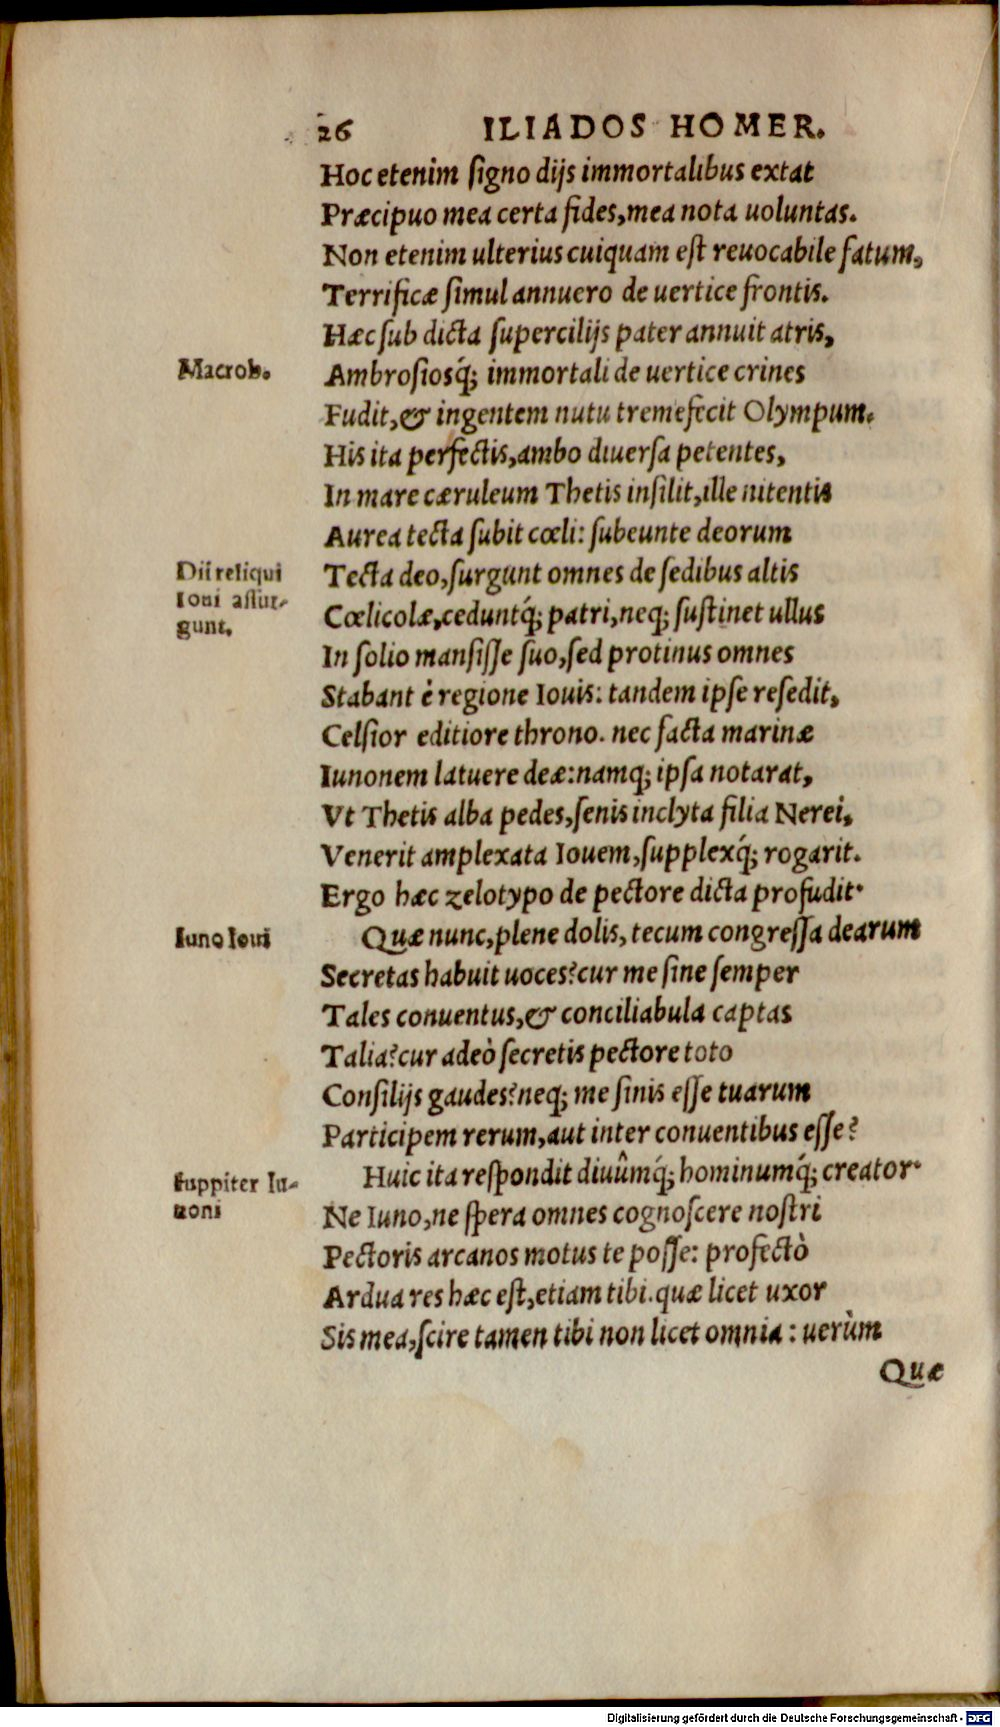 26 ILIADOS HOMER.
Hoc etenim signo dijs immortalibus extat
Præcipuo mea certa fides, mea nota uoluntas.
Non etenim ulterius cuiquam est reuocabile fatum,
Terrificæ simul annuero de uertice frontis.
Hæc sub dicta supercilijs pater annuit atris,
Macrob.
Ambrosiosq́; immortali de uertice crines
Fudit, & ingentem nutu tremefecit Olympum.
His ita perfectis, ambo diuersa petentes,
In mare cæruleum Thetis insilit, ille nitentis
Aurea tecta subit cœli: subeunte deorum
Dii reliqui
Ioui assur-
gunt.
Tecta deo, surgunt omnes de sedibus altis
Cœlicolæ, ceduntq́; patri, neq; sustinet ullus
In solio mansisse suo, sed protinus omnes
Stabant è regione Iouis: tandem ipse resedit,
Celsior editiore throno. nec facta marinæ
Iunonem latuere deæ: namq; ipsa notarat,
Vt Thetis alba pedes, senis inclyta filia Nerei,
Venerit amplexata Iouem, supplexq́; rogarit.
Ergo hæc zelotypo de pectore dicta profudit.
Iuno Ioui
Quæ nunc, plene dolis, tecum congressa dearum
Secretas habuit uoces? cur me sine semper
Tales conuentus, & conciliabula captas
Talia? cur adeò secretis pectore toto
Consilijs gaudes? neq; me sinis esse tuarum
Participem rerum, aut inter conuentibus esse?
Iuppiter Iu-
noni
Huic ita respondit diuûmq́; hominumq́; creator.
Ne Iuno, ne spera omnes cognoscere nostri
Pectoris arcanos motus te posse: profectò
Ardua res hæc est, etiam tibi. quæ licet uxor
Sis mea, scire tamen tibi non licet omnia: uerùm
Quæ
Digitalisierung gefördert durch die Deutsche Forschungsgemeinschaft - DFG